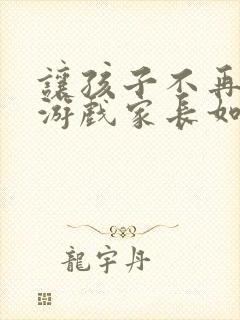 讓孩子不再
游戲家長如
龍宇丹